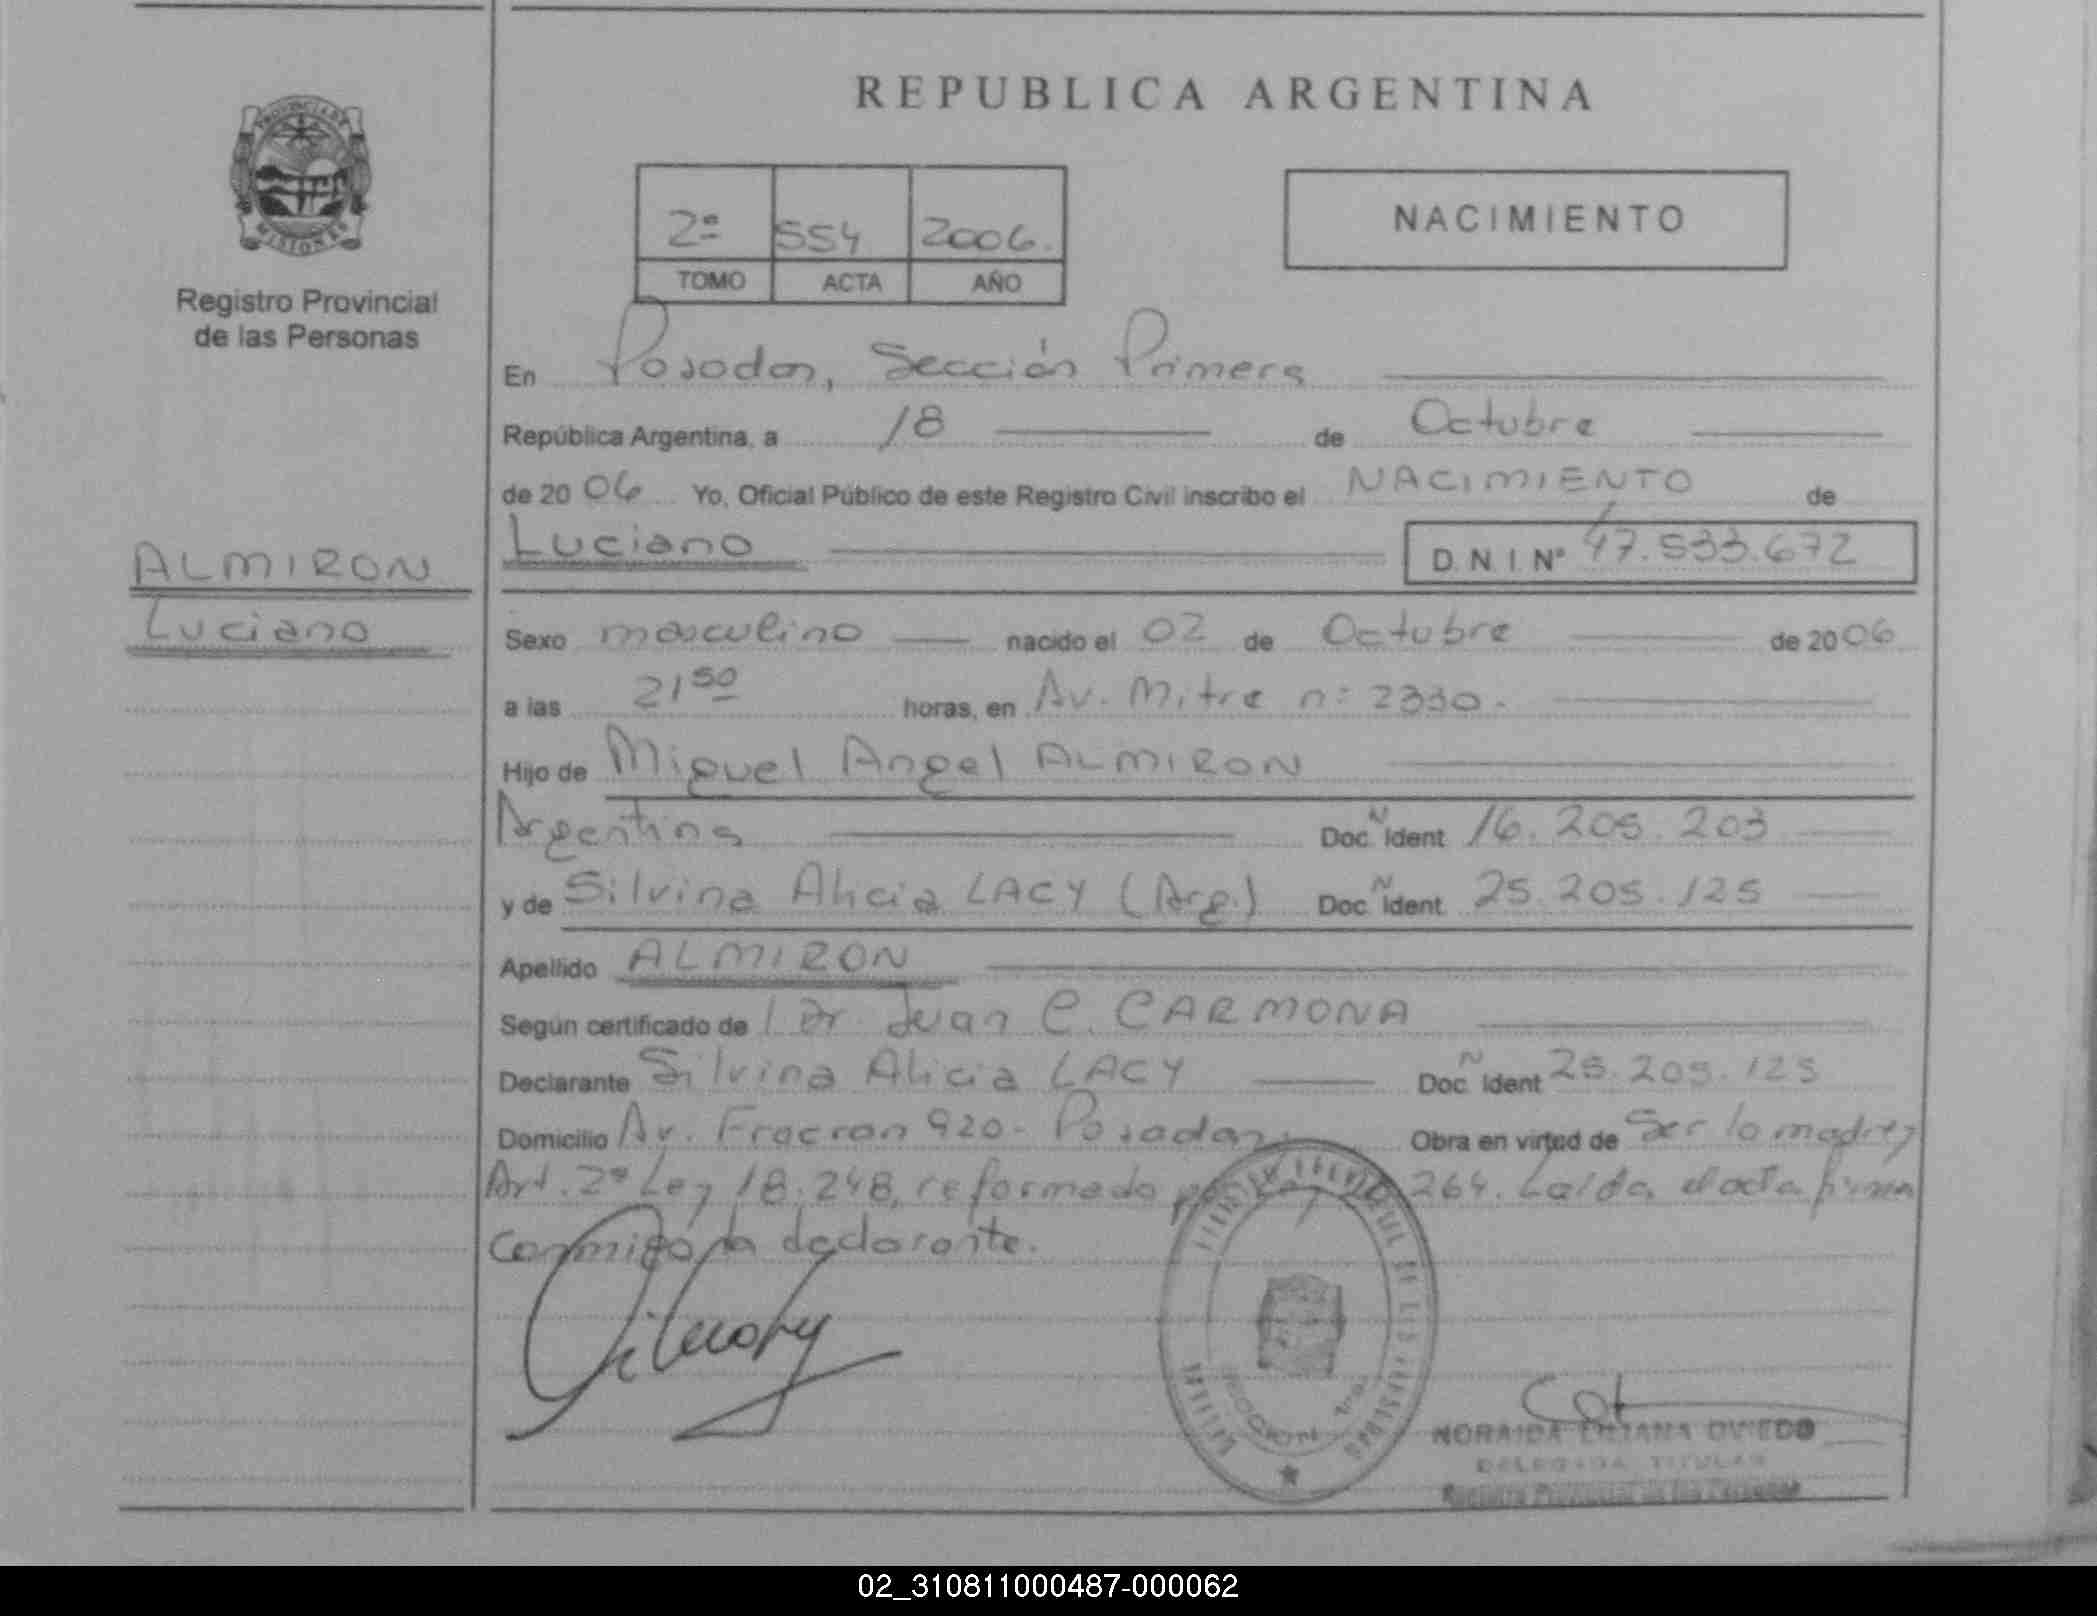 REPUBLICA ARGENTINA
PROVINCIA DE
MISIONES
Registro Provincial
de las Personas
2º 554 2006.
TOMO ACTA AÑO
NACIMIENTO
En Posadas, Sección Primera
República Argentina, a 18 de Octubre
de 2006 Yo, Oficial Público de este Registro Civil inscribo el NACIMIENTO de
ALMIRON
Luciano
Luciano D.N.I. Nº 47.533.672
Sexo masculino nacido el 02 de Octubre de 2006
a las 21 50 horas, en Av. Mitre nº 2330.
Hijo de Miguel Angel ALMIRON
Argentina Doc. Ident 16.205.203
y de Silvina Alicia LACY (Arg.) Doc. Ident 25.205.125
Apellido ALMIRON
Según certificado de l Dr. Juan C. CARMONA
Declarante Silvina Alicia LACY Doc. Ident 25.205.125
Domicilio Av. Fracran 920- Posadas. Obra en virtud de Ser la madre y
Art. 2º Ley 18.248, reformado 264. Leída el acta firma
conmigo la declarante.
NORAIDA LILIANA OVIEDO
DELEGADA TITULAR
Registro Provincial de las Personas
02_310811000487-000062